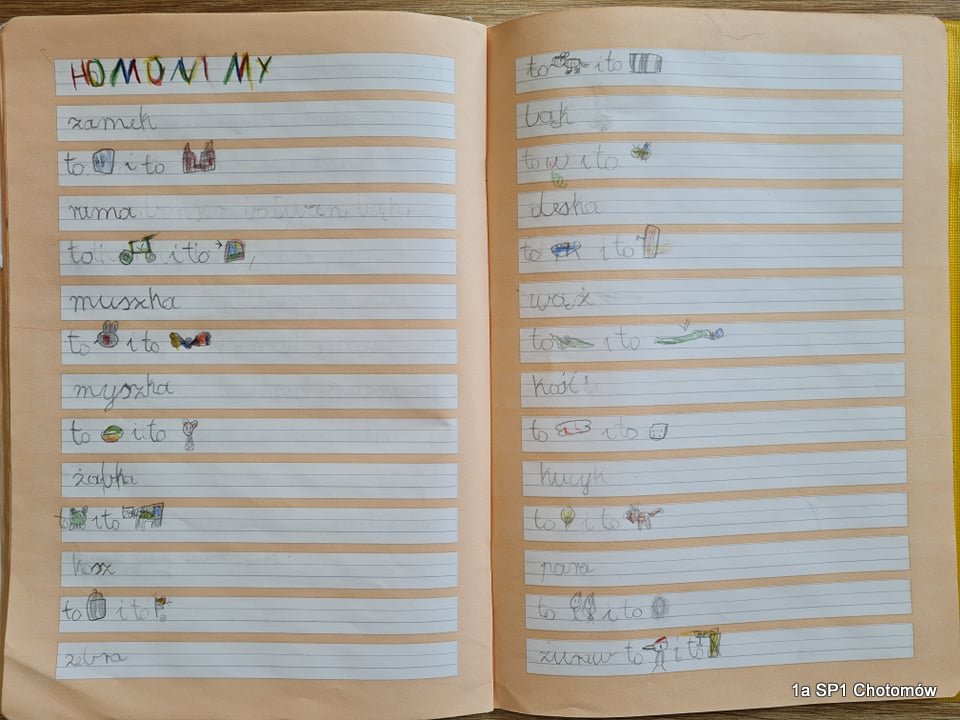 HOMONIMY
zamek
to i to
rama
to i to
muszka
to i to
myszka
to i to
żabka
to i to
kosz
to i to
zebra
to i to
bąk
to i to
deska
to i to
wąż
to i to
kość
to i to
kucyk
to i to
para
to i to
żuraw to i to
1a SP1 Chotomów